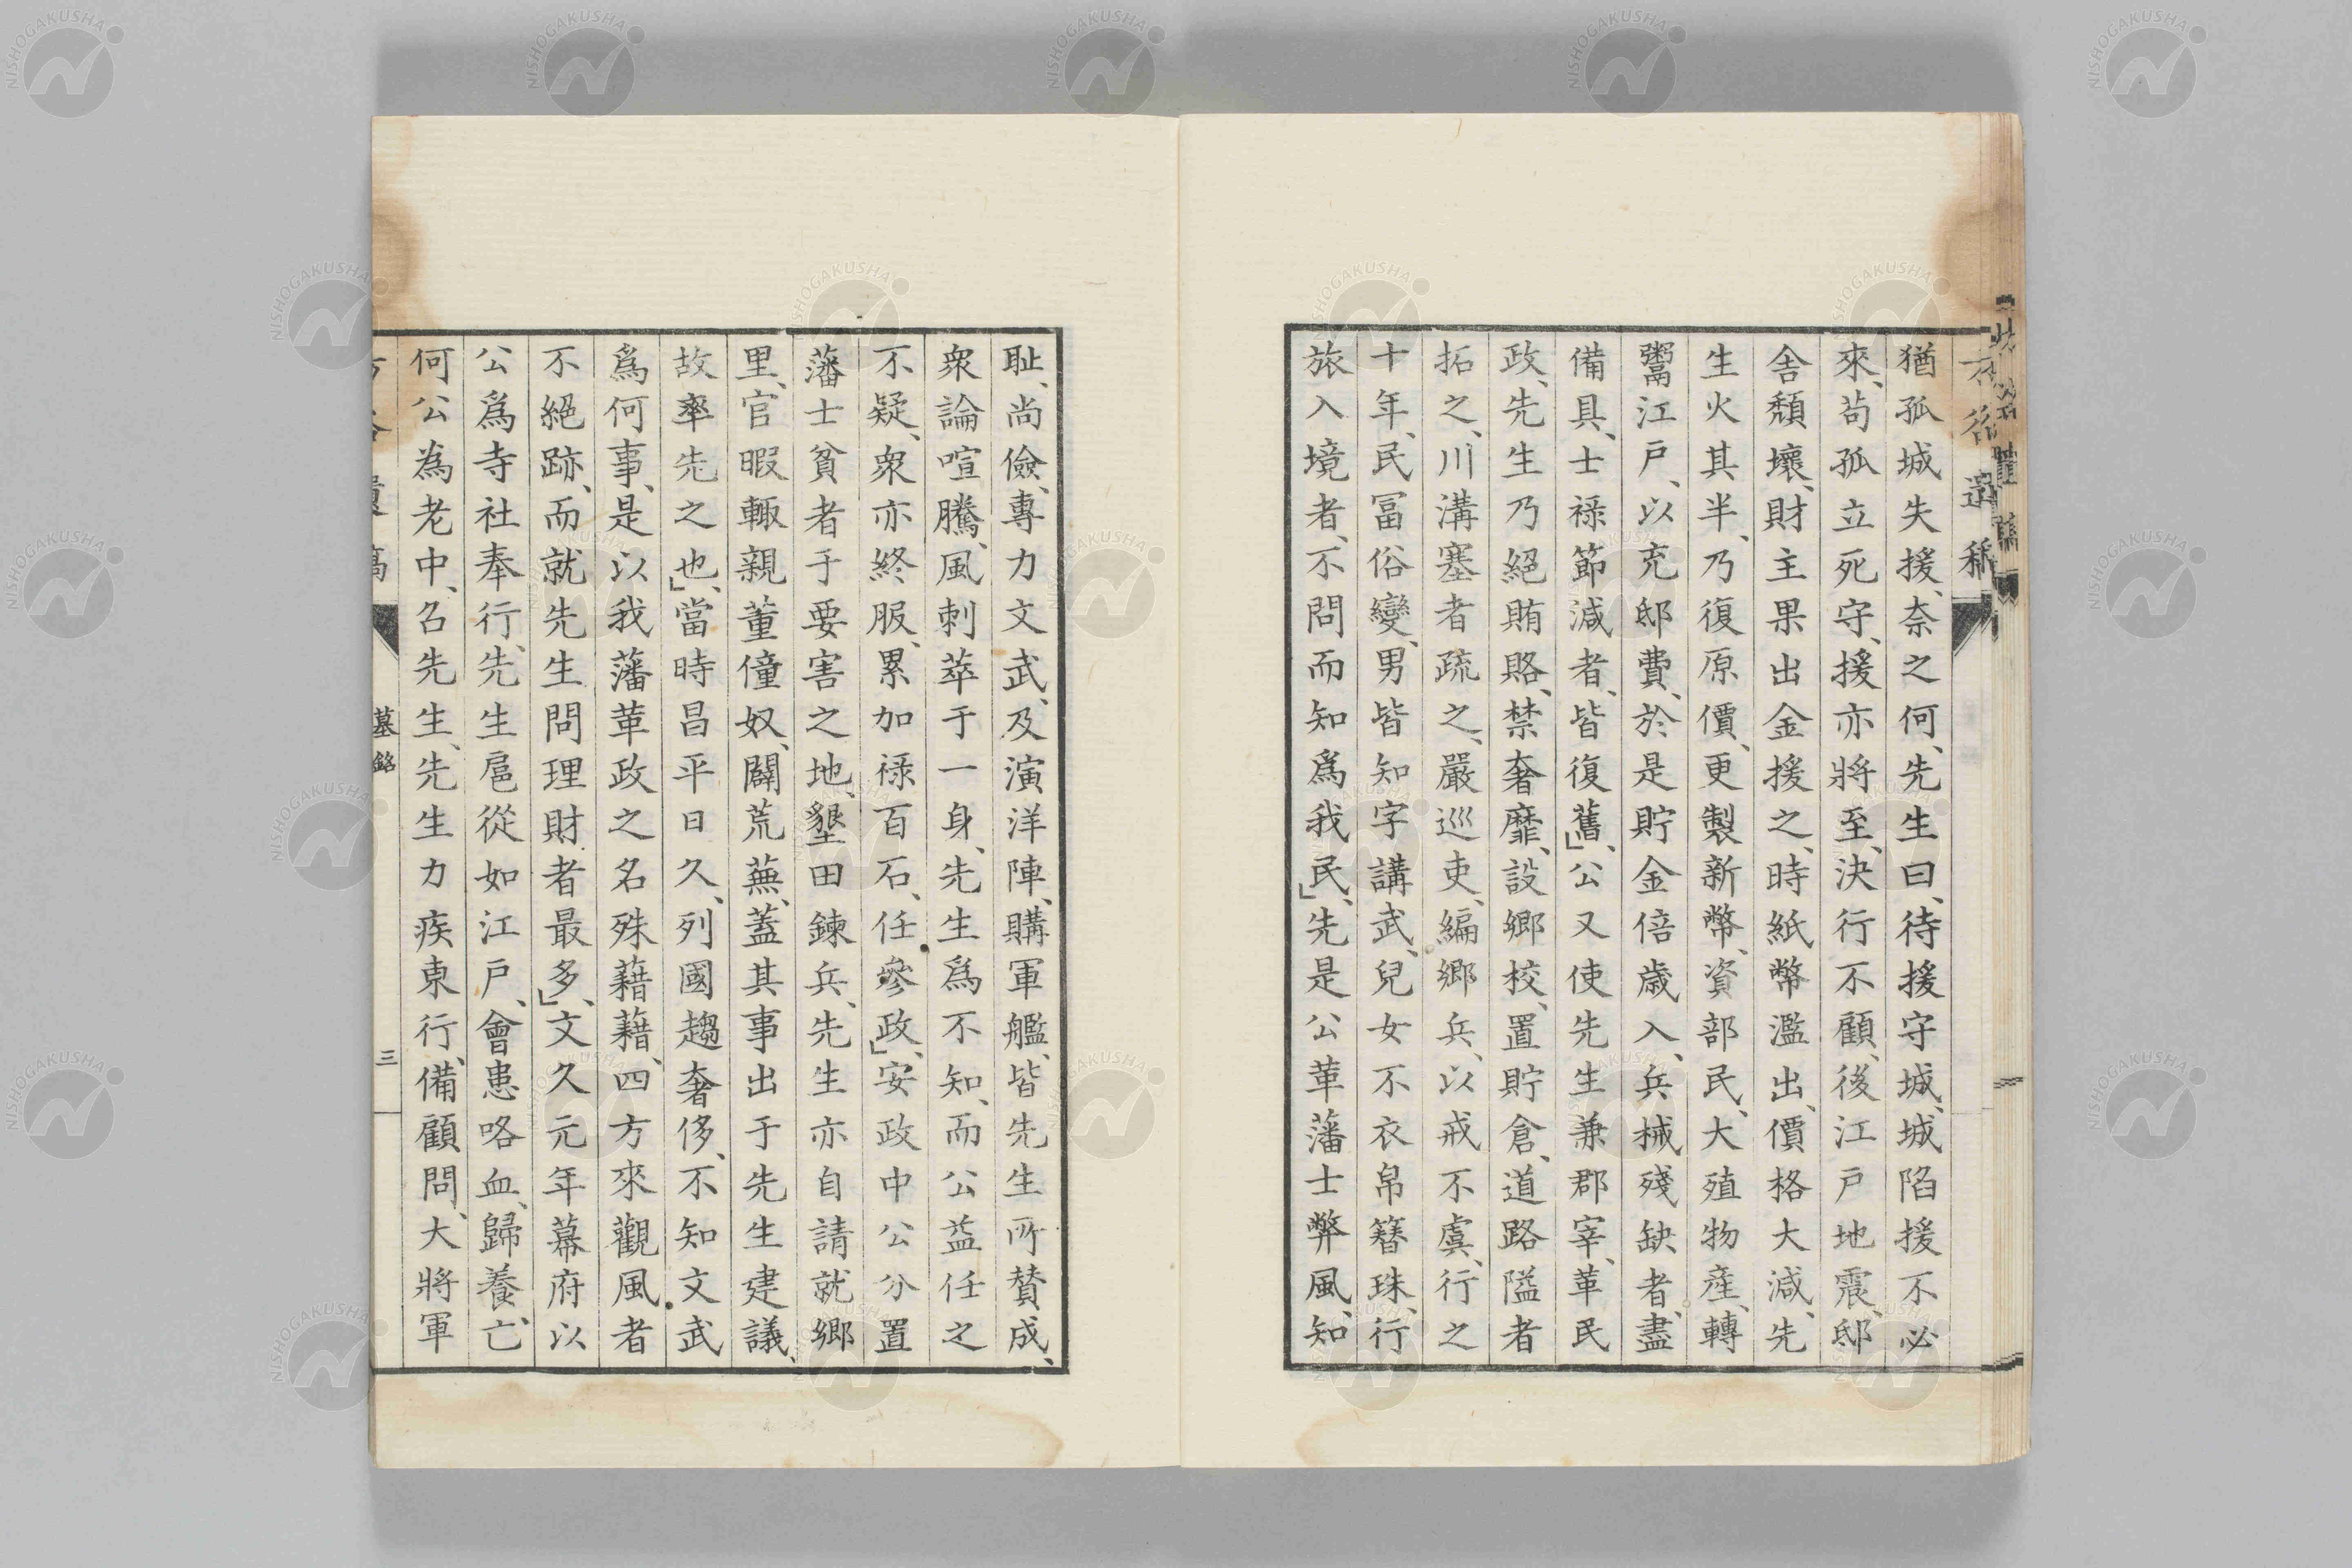 猶孤城失援、奈之何、先生曰、待援守城、城陷援不必
來、苟孤立死守、援亦將至、決行不顧、後江戸地震、邸
舍頽壞、財主果出金援之、時紙幣濫出、價格大減、先
生火其半、乃復原價、更製新幣、資部民、大殖物產、轉
鬻江戸、以充邸費、於是貯金倍歳入、兵械殘缺者、盡
備具、士禄節減者、皆復舊」、公又使先生兼郡宰、革民
政、先生乃絕賄賂、禁奢靡、設鄉校、置貯倉、道路隘者
拓之、川溝塞者疏之、嚴巡吏、編鄉兵、以戒不虞、行之
十年、民冨俗變、男皆知字講武、兒女不衣帛簪珠、行
旅入境者、不問而知爲我民」、先是公革藩士弊風、知
耻、尚儉、專力文武、及演洋陣、購軍艦、皆先生所賛成、
衆論喧騰、風刺萃于一身、先生爲不知、而公益任之
不疑、衆亦終服、累加禄百石、任參政」、安政中公分置
藩士貧者于要害之地、墾田鍊兵、先生亦自請就鄉
里、官暇輙親董僮奴、闢荒蕪、蓋其事出于先生建議、
故率先之也」、當時昌平日久、列國趨奢侈、不知文武
爲何事、是以我藩革政之名殊藉藉、四方來觀風者
不絕跡、而就先生問理財者最多」、文久元年幕府以
公爲寺社奉行、先生扈從如江戸、會患咯血、歸養、亡
何公為老中、召先生、先生力疾東行、備顧問、大將軍
墓銘
三